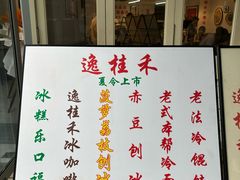 逸桂禾
夏令上市
老法冷馄
老式本帮冷
赤豆刨
菠萝荔枝刨
逸桂禾冰咖
冰糕乐口福